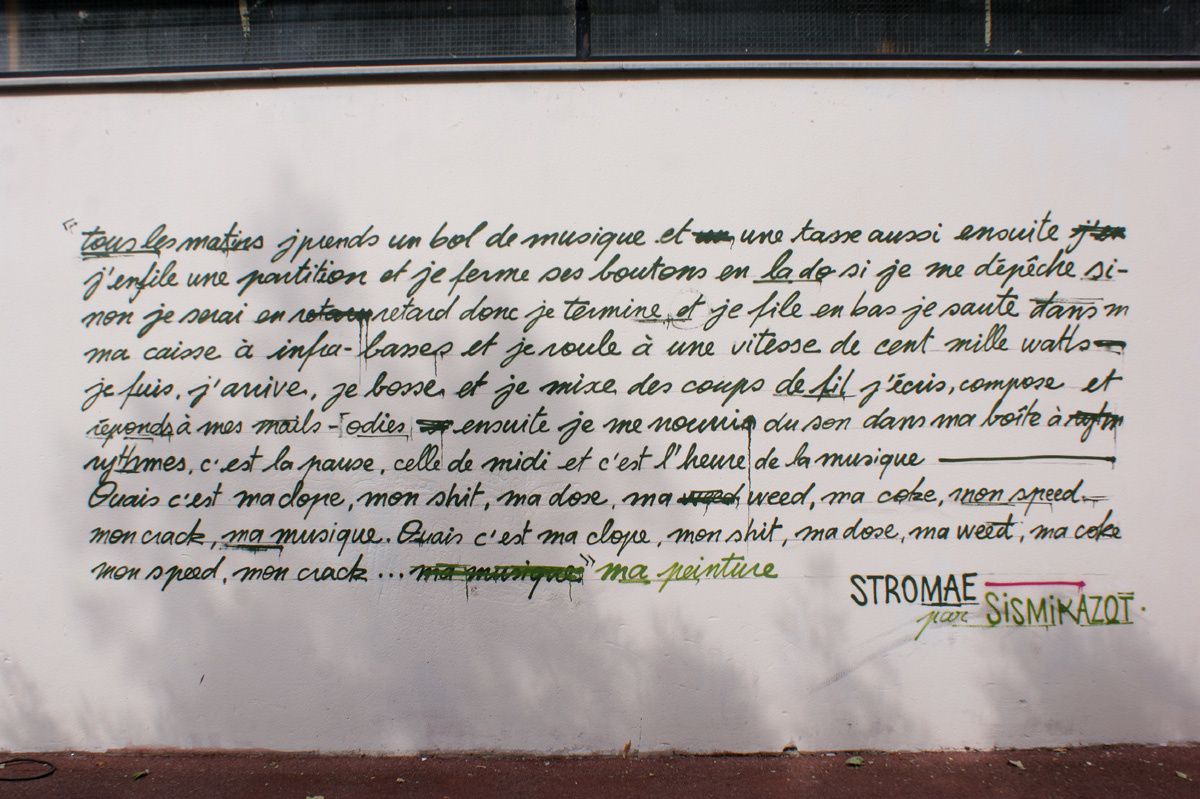 « tous les matins j'prends un bol de musique et une tasse aussi ensuite j'en
j'enfile une partition et je ferme ses boutons en la do si je me dépêche si-
non je serai en retard donc je termine et je file en bas je saute dans m
ma caisse à infra-basses et je roule à une vitesse de cent mille watts
je fuis, j'arrive, je bosse et je mixe des coups de fil j'écris, compose et
réponds à mes mails-[odies] ensuite je me nourris du son dans ma boîte à
rythmes, c'est la pause, celle de midi et c'est l'heure de la musique
Ouais c'est ma clope, mon shit, ma dose, ma weed weed, ma coke, mon speed
mon crack, ma musique. Ouais c'est ma clope, mon shit, ma dose, ma weed, ma coke
mon speed, mon crack... ma musique » ma peinture
STROMAE
par SiSMiKAZOT.